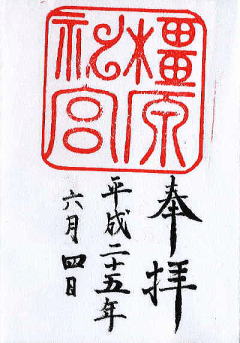 橿原
神宮
奉拝
平成二十五年
六月四日